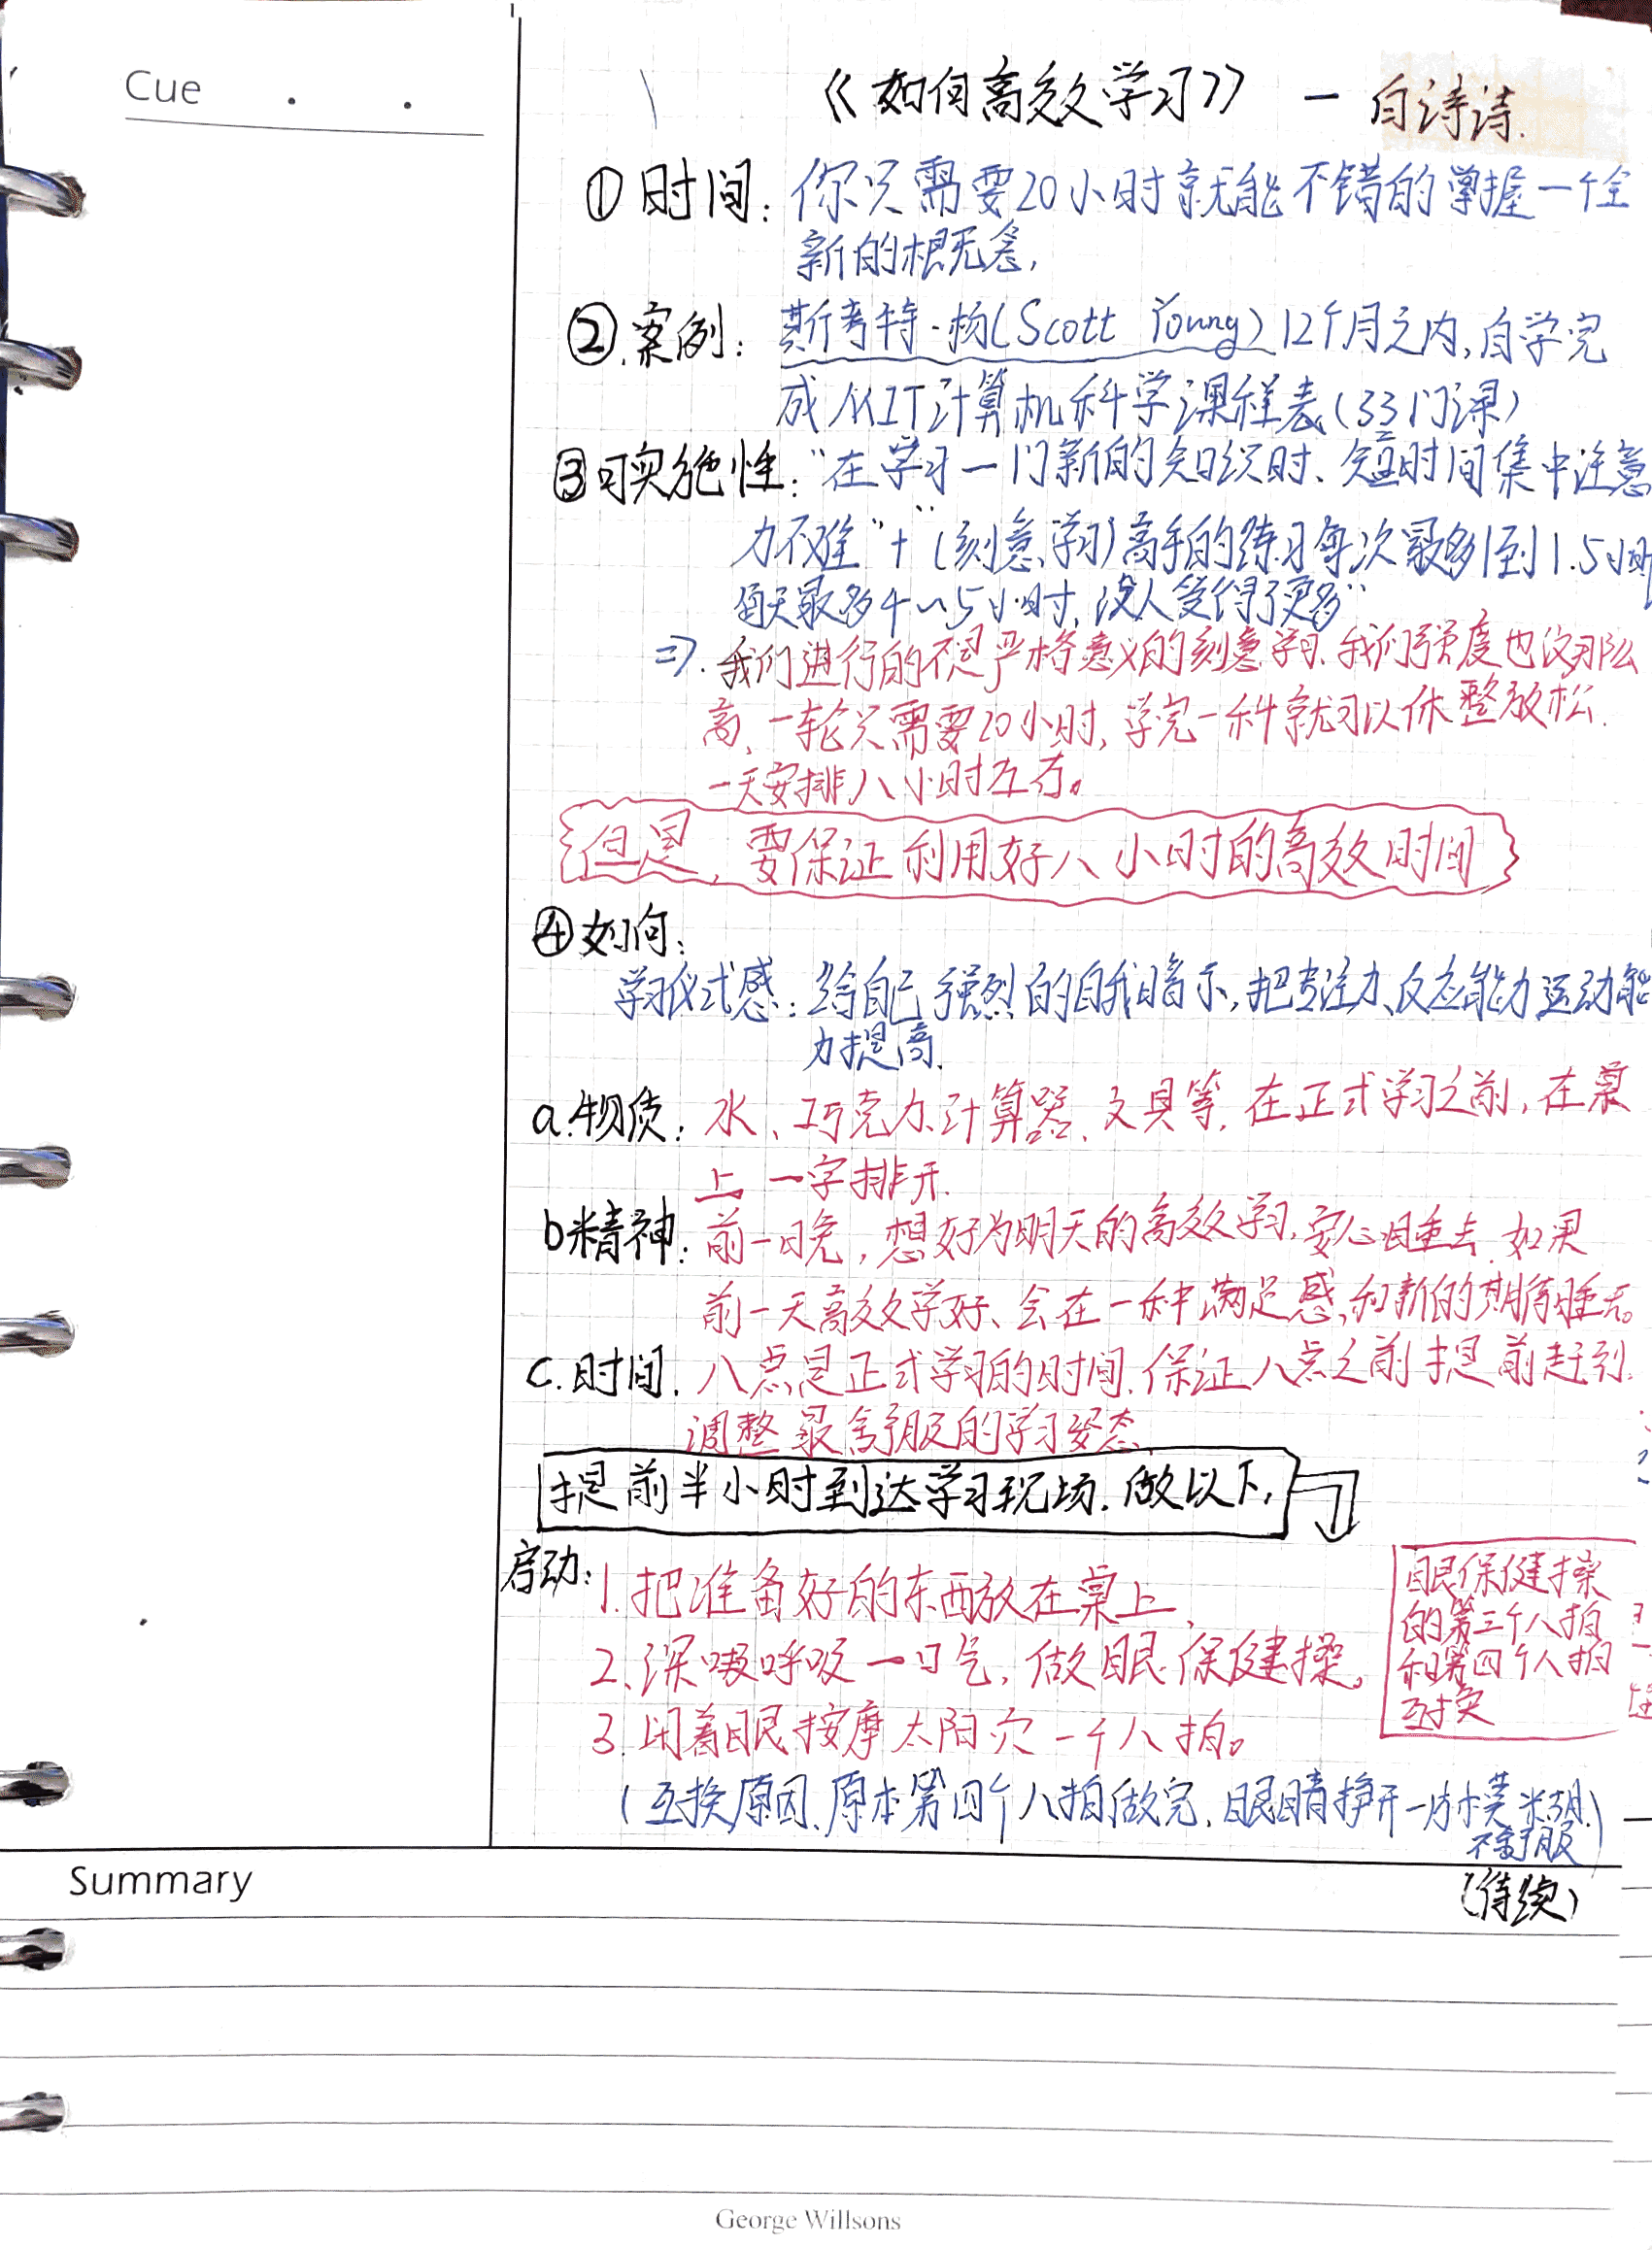 Cue
《如何高效学习》 — 白诗诗.
①时间: 你只需要20小时就能不错的掌握一个全
新的概念,
②.案例: 斯考特·杨(Scott Young)12个月之内,自学完
成MIT计算机科学课程表(33门课)
③可实施性: "在学习一门新的知识时、短时间集中注意
力不难"+"(刻意学习)高手的练习每次最多1到1.5小时
每天最多4~5小时,没人受得了更多"
=>.我们进行的不是严格意义的刻意学习、我们强度也没那么
高、一轮只需要20小时,学完一科就可以休整放松.
一天安排八小时左右。
但是,要保证利用好八小时的高效时间
④如何:
学习仪式感: 给自己强烈的自我暗示,把专注力、反应能力运动能
力提高.
a.物质: 水、巧克力、计算器、文具等,在正式学习之前,在桌
上一字排开.
b精神: 前一晚,想好为明天的高效学习,安心睡去.如果
前一天高效学好、会在一种满足感,和新的期待睡去。
c.时间. 八点是正式学习的时间.保证八点之前提前赶到.
调整最舒服的学习姿态.
提前半小时到达学习现场.做以下,
启动: 1.把准备好的东西放在桌上,
2、深嗳呼吸一口气,做眼保健操。
3.闭着眼按摩太阳穴一个八拍。
眼保健操
的第三个八拍
和第四个八拍
互换
(互换原因.原本第四个八拍做完,眼睛挣开一片模米胡.
不舒服)
Summary
(待续)
George Willsons